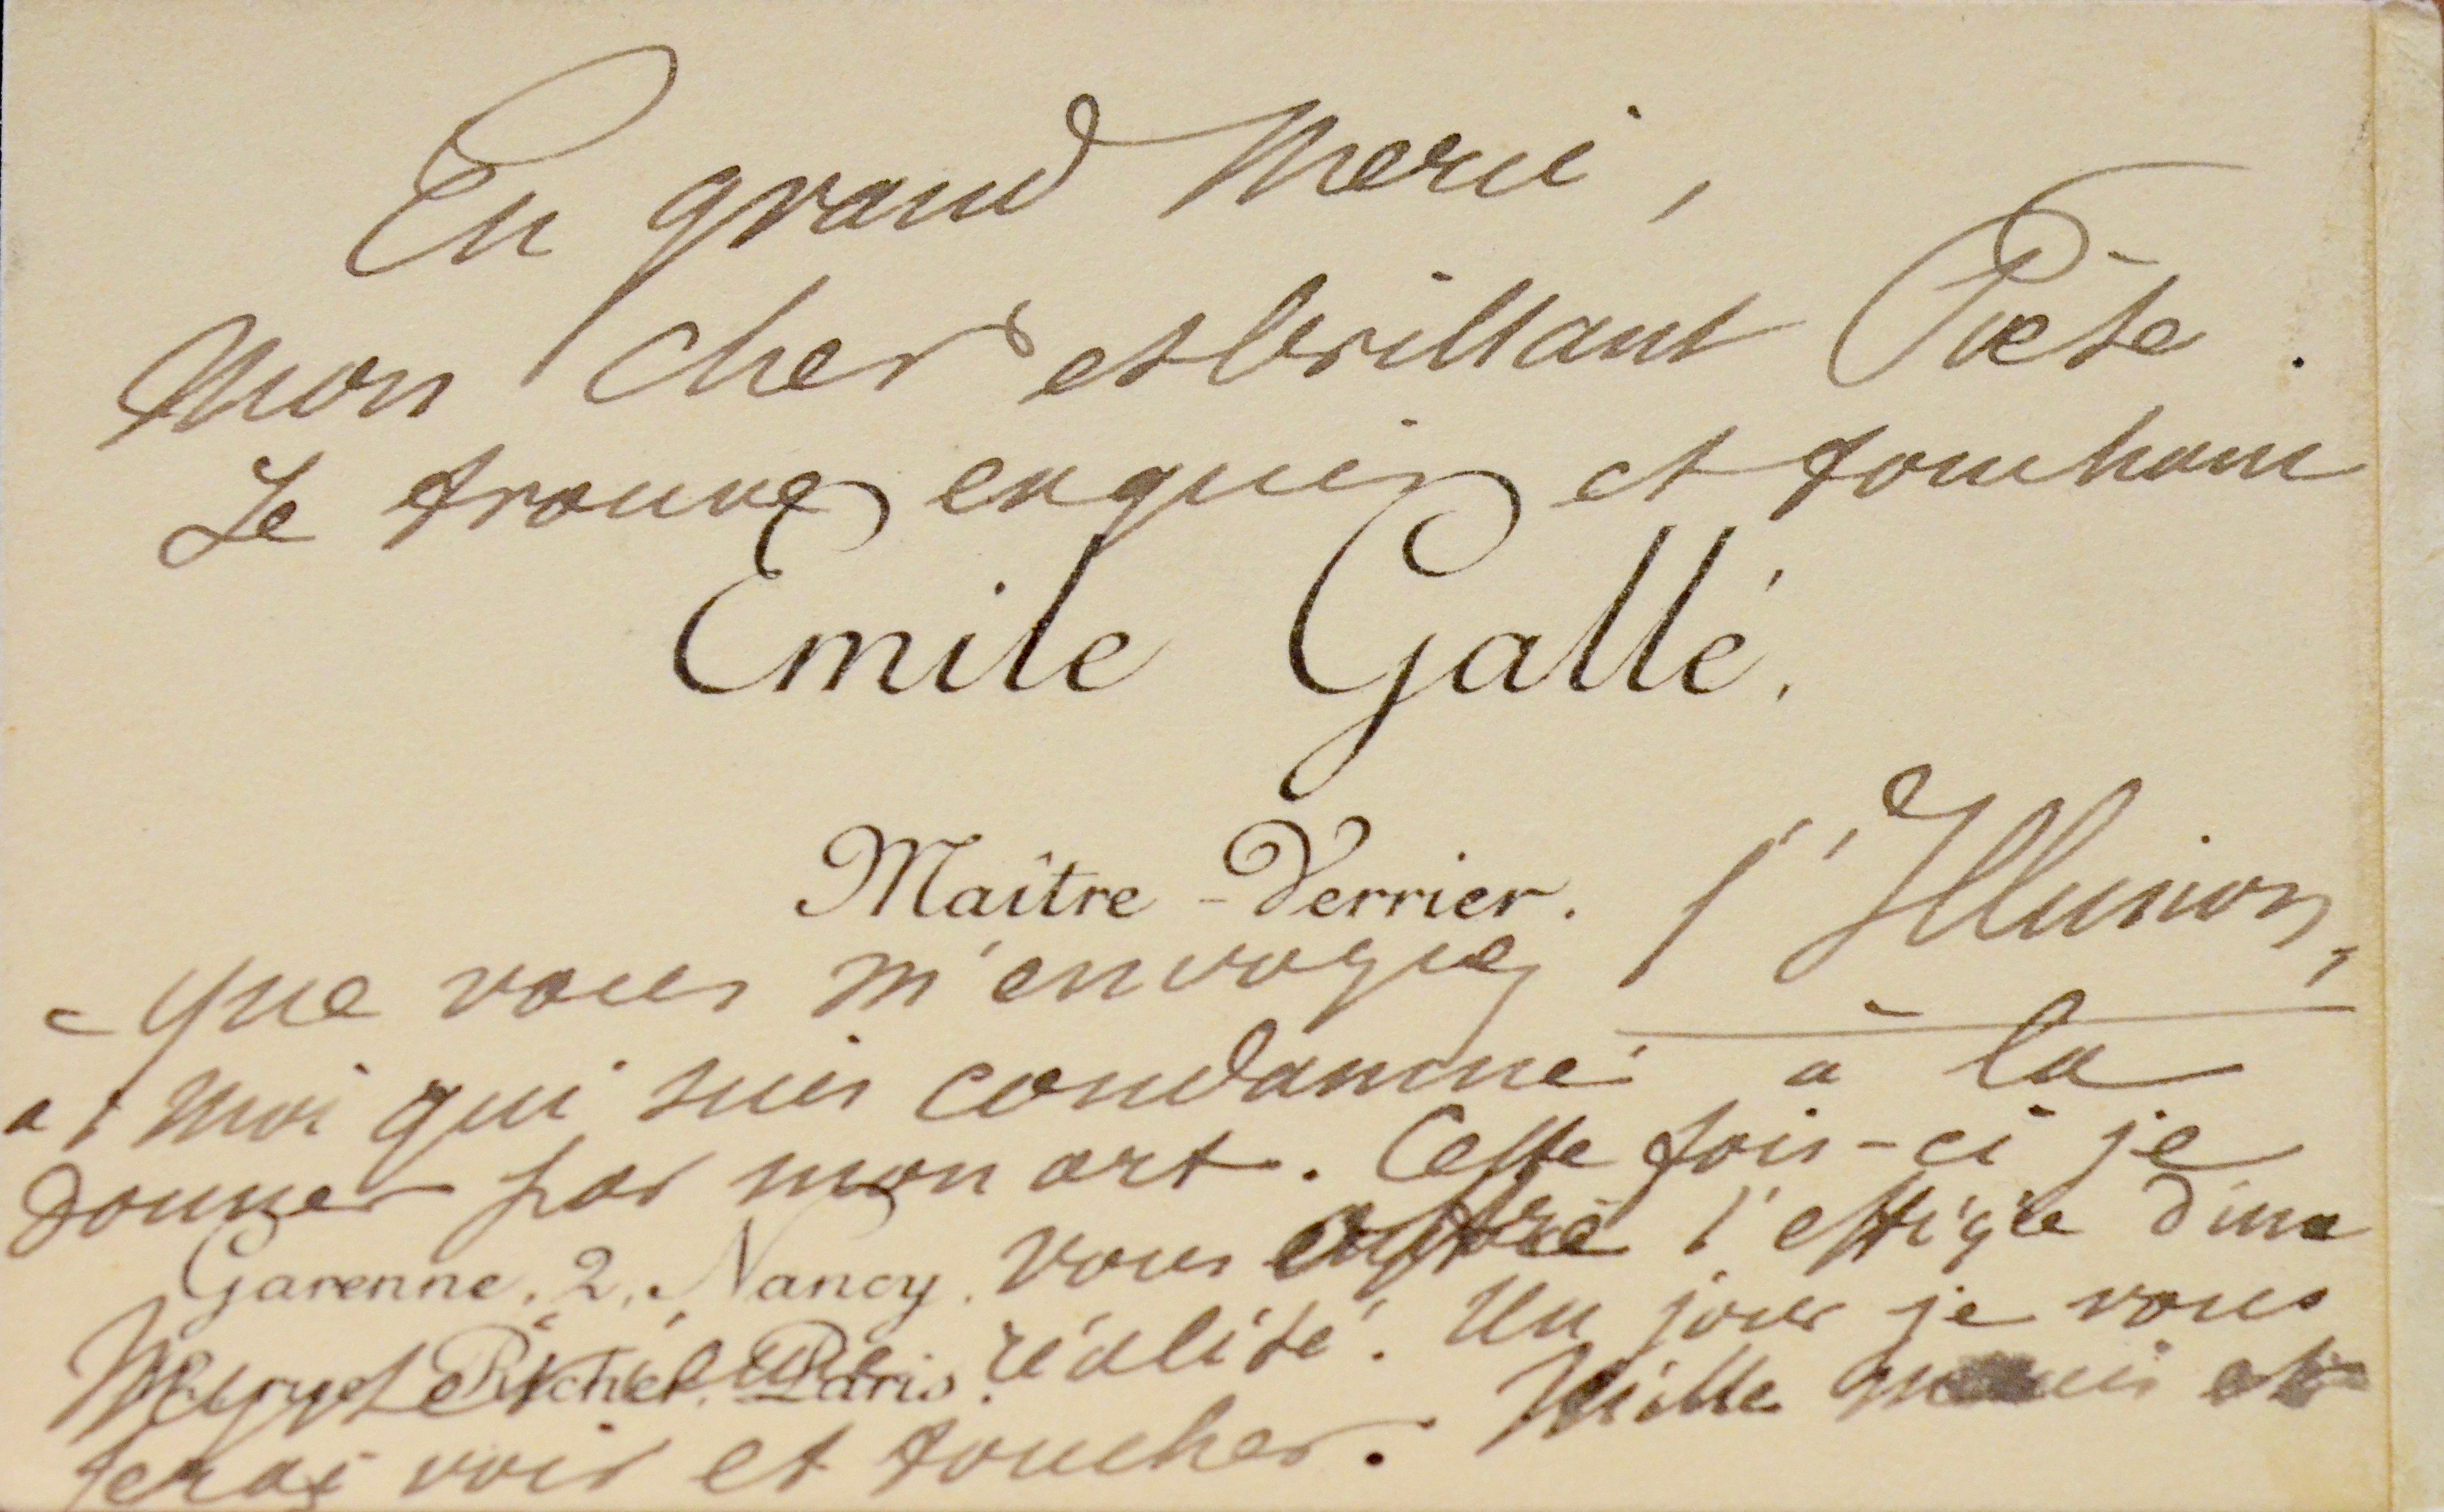 Un grand Merci,
Mon cher et brillant Poète.
Je trouve exquis et touchant
Emile Gallé.
Maître-Verrier.
l'Illusion,
que vous m'envoyiez
à moi qui suis condamné à la
donner par mon art. Cette fois-ci je
Garenne, 2, Nancy.
vous offre l'effigie d'une
réalité. Un jour je vous
Richer, Paris.
Mille et
ferai voir et toucher.